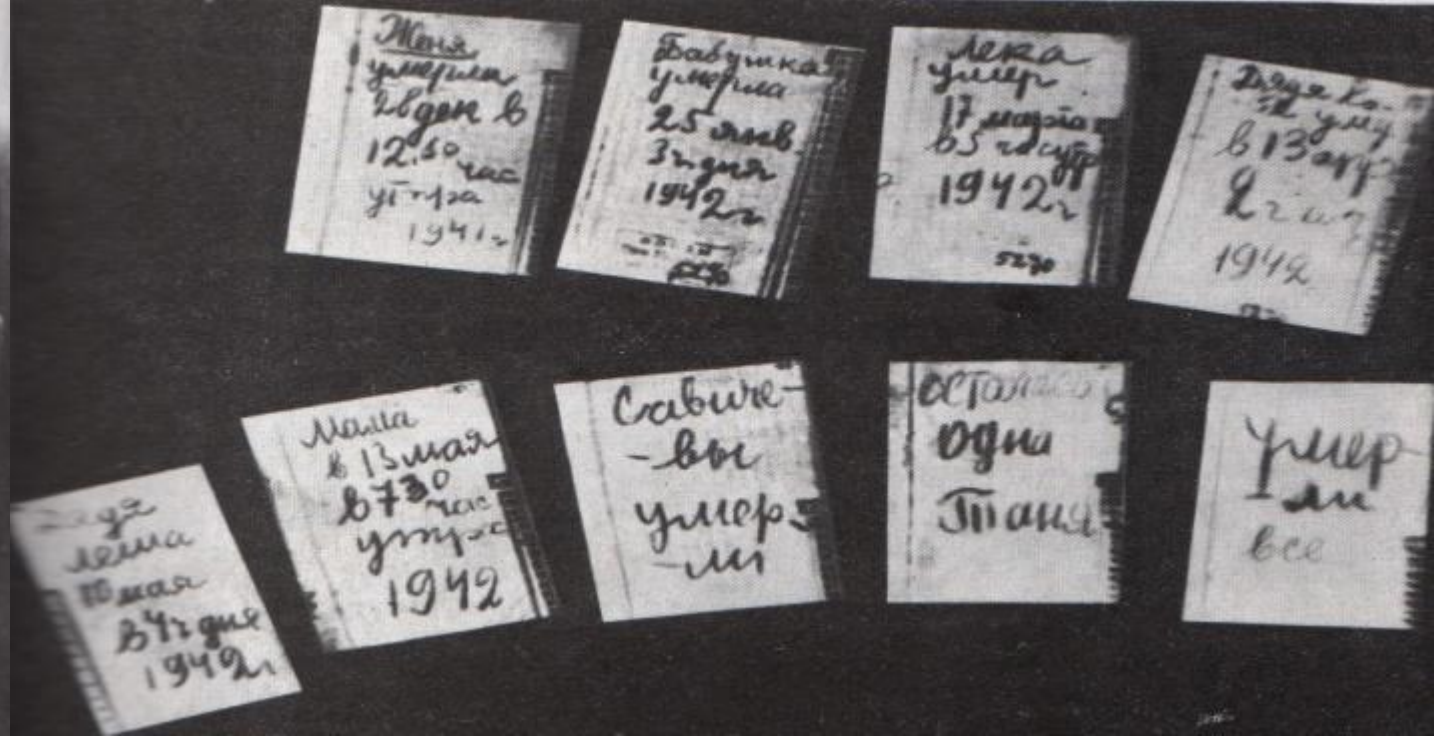 Женя
умерла
28 ден в
12.30 час
утра
1941 г
Бабушка
умерла
25 янв.
3 ч. дня
1942 г
5270
Лека
умер
17 марта
в 5 час утр
1942 г
5270
Дядя
умер
в 13 апр
2 ч
1942
Дядя
Леша
10 мая
в 4 ч дня
1942 г
Мама
в 13 мая
в 7 30
час
утра
1942
Савиче-
-вы
умер
-ли
остались
одна
Таня
умер
ли
все